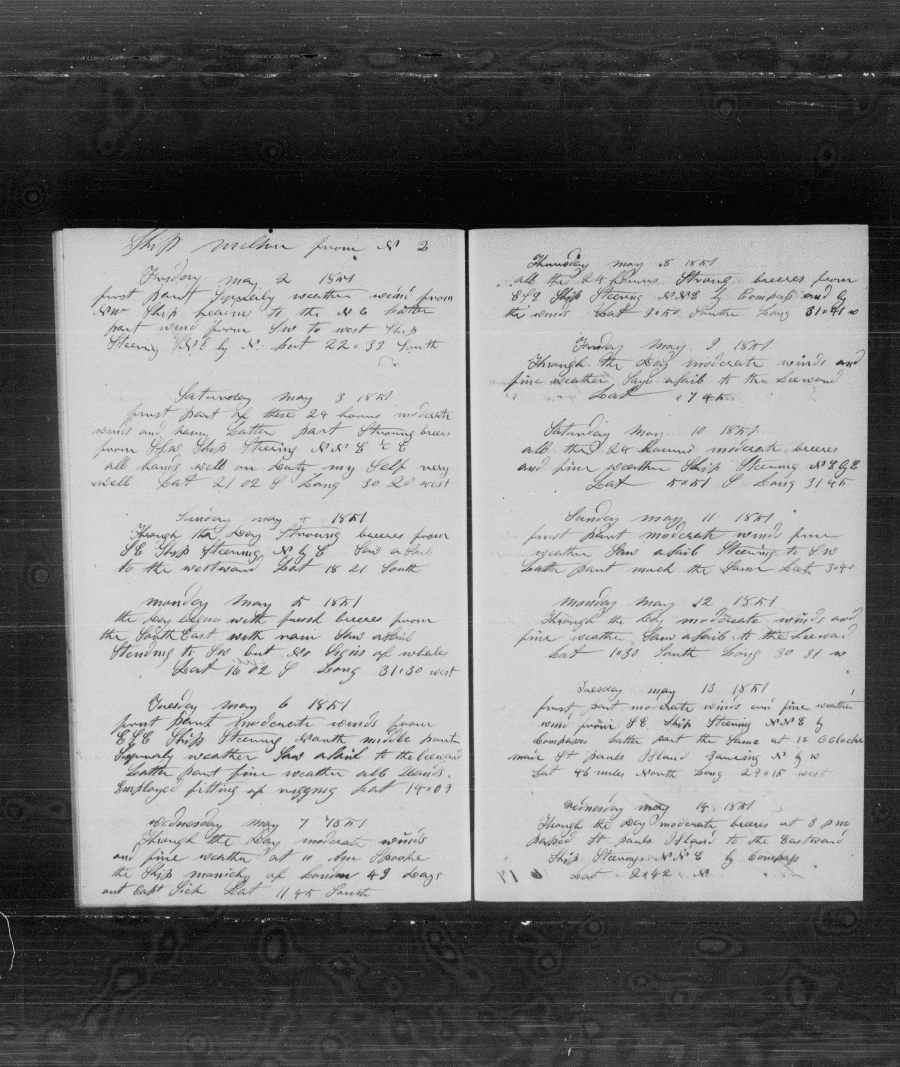 Ship from N 2
Friday may 2 1851
first part weather wind from
Ship heading to the N E Latter
part wind from Sw to west Ship
Steering NE by N Lat 22.33 South
Saturday may 3 1851
first part of these 24 hours moderate
winds and rainy Latter part Stroung brees
from Ship Steering N N E ½ E
all hands well on Duty my Self very
well Lat 21 02 S Long 30 20 west
Sunday may 4 1851
Through the Day Stroung breeres from
SE Ship Steering N by E Saw a Sail
to the westward Lat 18 21 South
monday may 5 1851
the Day begins with fresh breeres from
the South East with rain Saw a Sail
Standing to Sw but No Signs of whales
Lat 16 02 S Long 31.30 west
Tuesday may 6 1851
first part moderate winds from
ESE Ship Steering North middle part
weather Saw a Sail to the leeward
Latter part fine weather all Hands
Employed fitting of rigging Lat 14.09
Wednesday may 7 1851
Through the Day moderate winds
and fine weather at 10 Am Spoake
the Ship of London 49 Days
out Lat 11 45 South
Thursday may 8 1851
all the 24 hours Stroung breeres from
ESE Ship Steering NNE by Compass and by
the winds Lat South Long 31.41 w
Friday may 9 1851
Through the Day moderate winds and
fine weather a Sail to the Leeward
Lat 7 45
Saturday may 10 1851
all the 24 hours moderate breeres
and fine weather Ship Steering
Lat 5.51 S Long 31 45
Sunday may 11 1851
first part moderate winds fine
weather Saw a Sail Steering to Sw
Latter part much the Same Lat 3.40
Monday may 12 1851
Through the Day moderate winds and
fine weather Saw a Sail to the Leeward
Lat 1.30 South Long 30 31 w
Tuesday may 13 1851
first part moderate winds and fine weather
wind from SE Ship Steering NNE by
Compases Latter part the Same at 12 O Clock
made St pauls Island N by w
Lat 46 miles North Long 29.15 west
Wednesday may 14 1851
Through the Day moderate breeres at 3 pm
passed St pauls Island to the Eastward
Ship Steering NNE by Compass
Lat 2.42 N